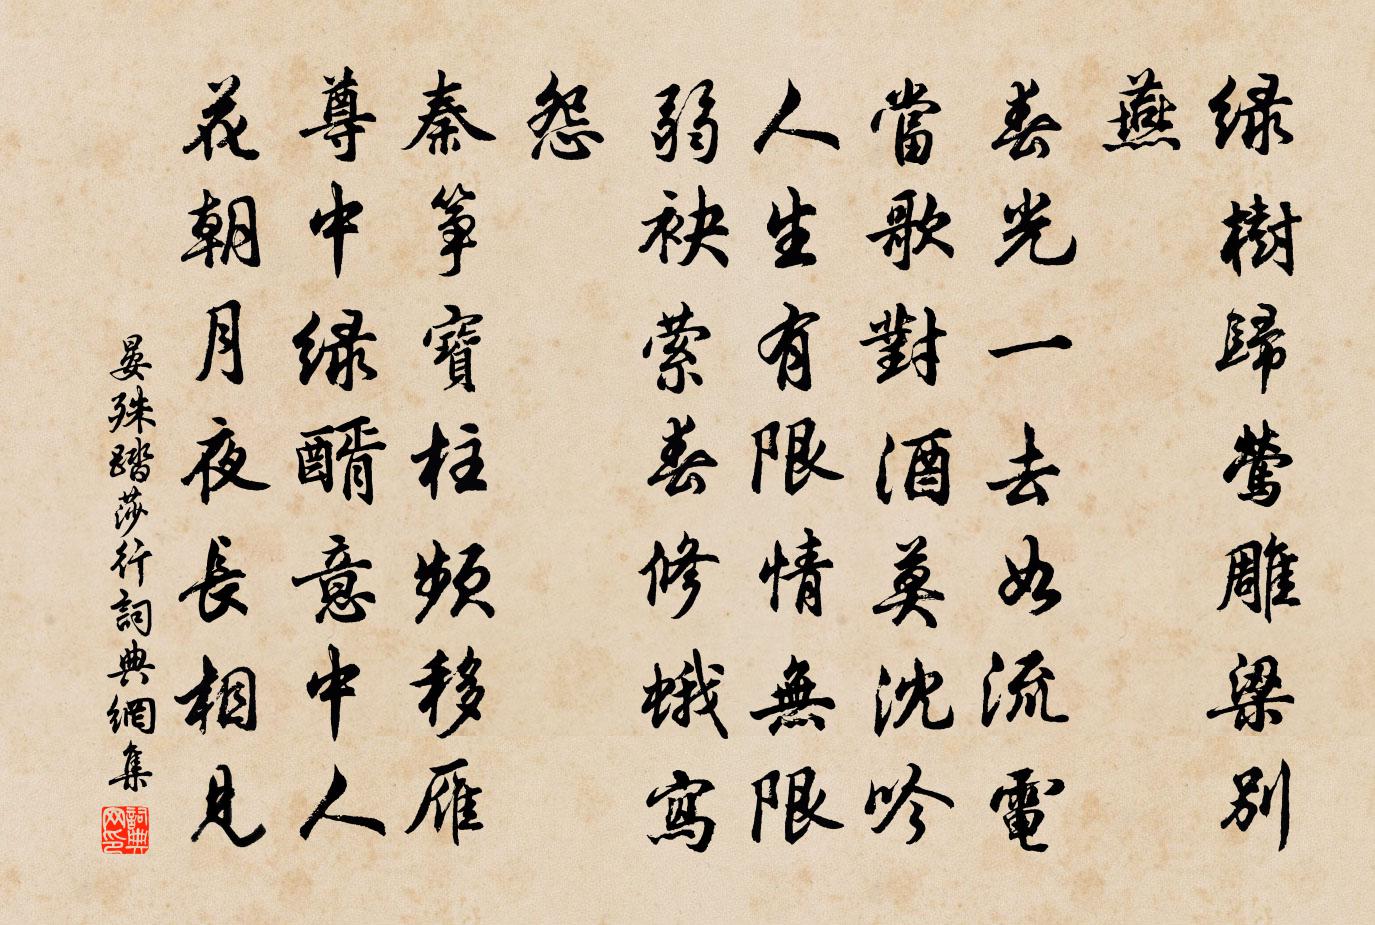 緑樹歸鶯雕梁別
燕
春光一去如流電
當歌對酒莫沈吟
人生有限情無限
弱袂縈春修蛾寫
怨
秦箏寶柱頻移雁
尊中緑醑意中人
花朝月夜長相見
晏殊踏莎行詞典網集
詞典網印